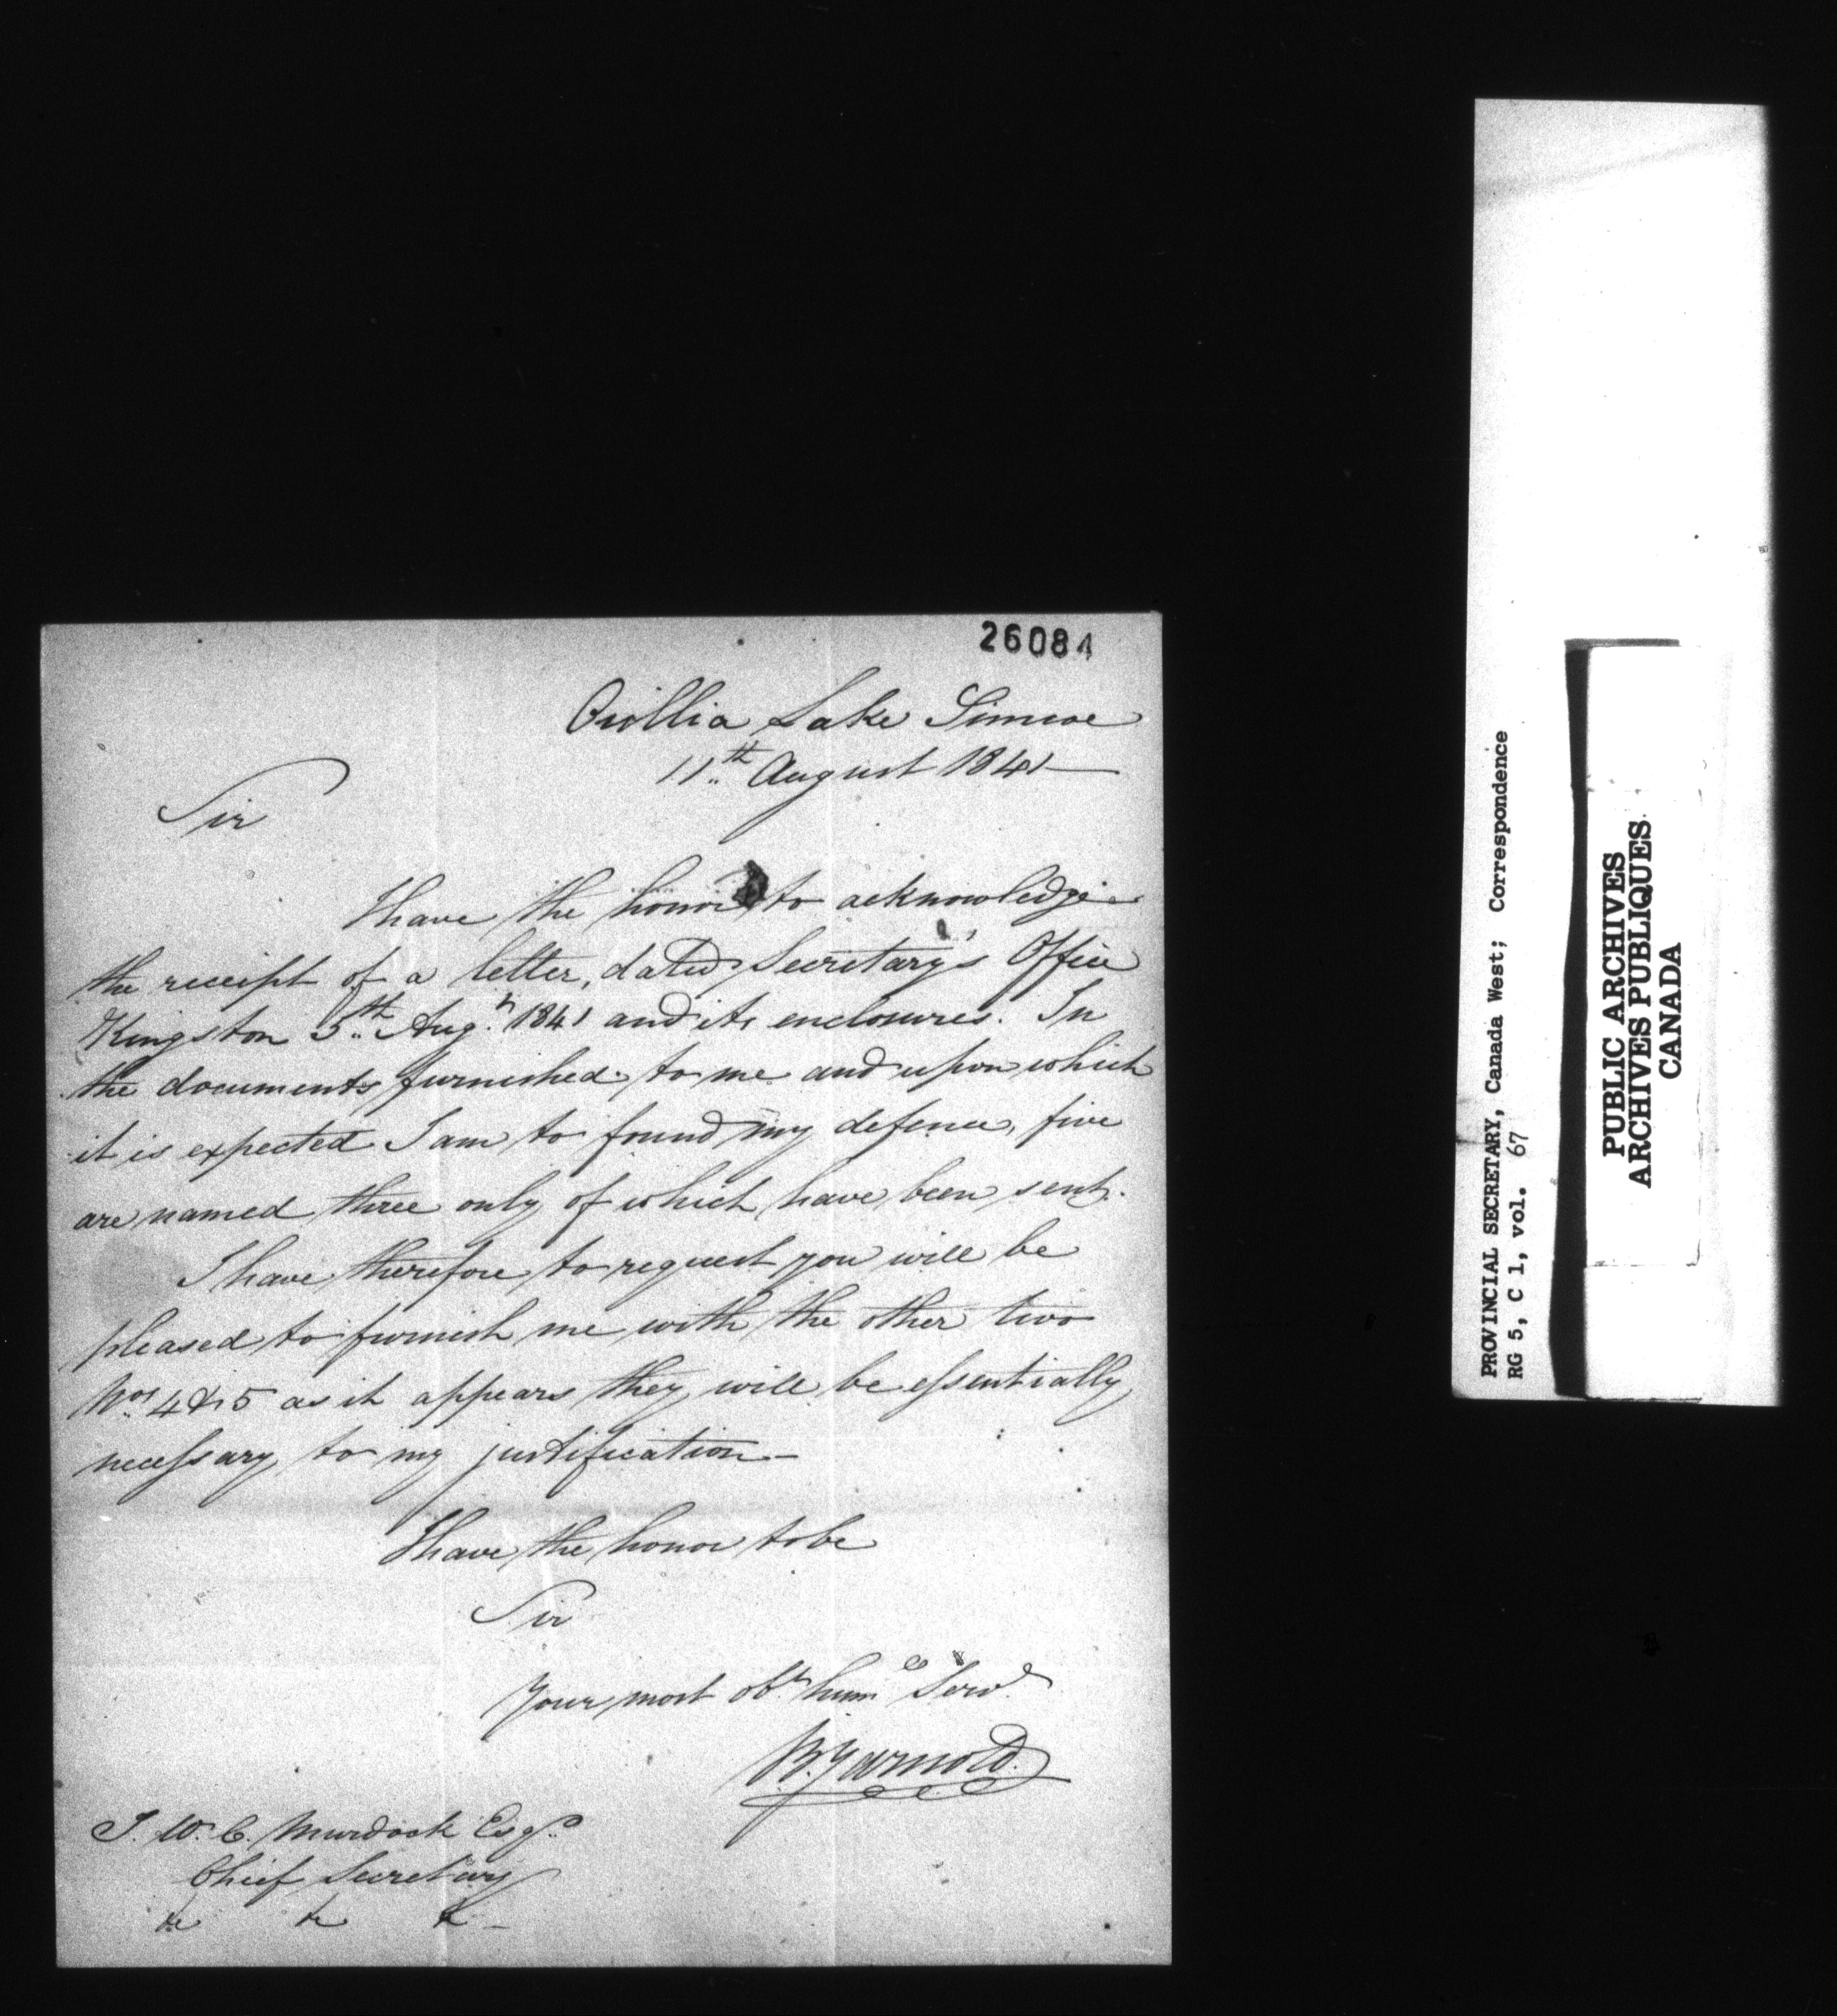 26084
Orillia Lake Simcoe
11th August 1841
Sir
I have the honor to acknowledge
the receipt of a letter, dated Secretary's Office
Kingston 5th Augt 1841 and its enclosures. In
the documents furnished to me and upon which
it is expected I am to found my defence, five
are named three only of which have been sent.
I have therefore to request you will be
pleased to furnish me with the other two
Nos 4 & 5 as it appears they will be essentially
necessary to my justification—
I have the honor to be
Sir
Your most obt humle Servt
Yarnold.
T. W. C. Murdock Esqr.
Chief Secretary
&c &c &c
PROVINCIAL SECRETARY, Canada West; Correspondence
RG 5, C 1, vol. 67
PUBLIC ARCHIVES
ARCHIVES PUBLIQUES
CANADA